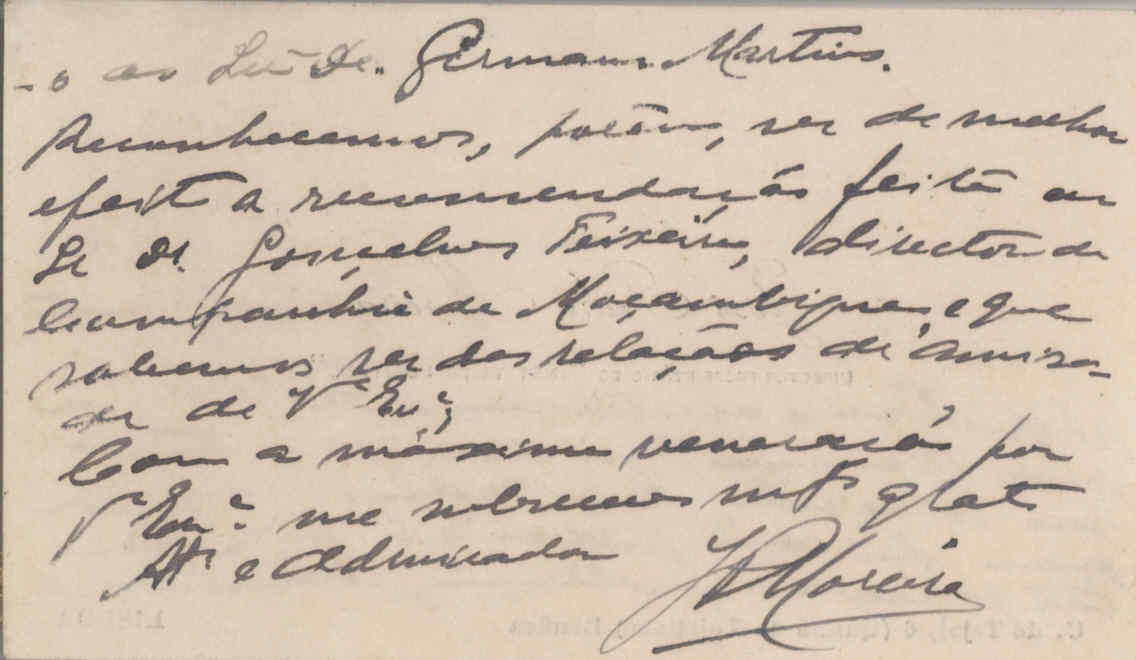 -o ao Snr Dr. Germano Martins.
Reconhecemos, porém, ser de melhor
efeito a recomendação feita ao
Sr Dr. Gonçalves Teixeira, director da
Companhia de Moçambique, e que
sabemos ser das relações de amisa-
de de V.ª Ex.ª,
Com a máxima veneração por
V.ª Ex.ª me subscrevo mto grato
Attº e admirador
Moreira